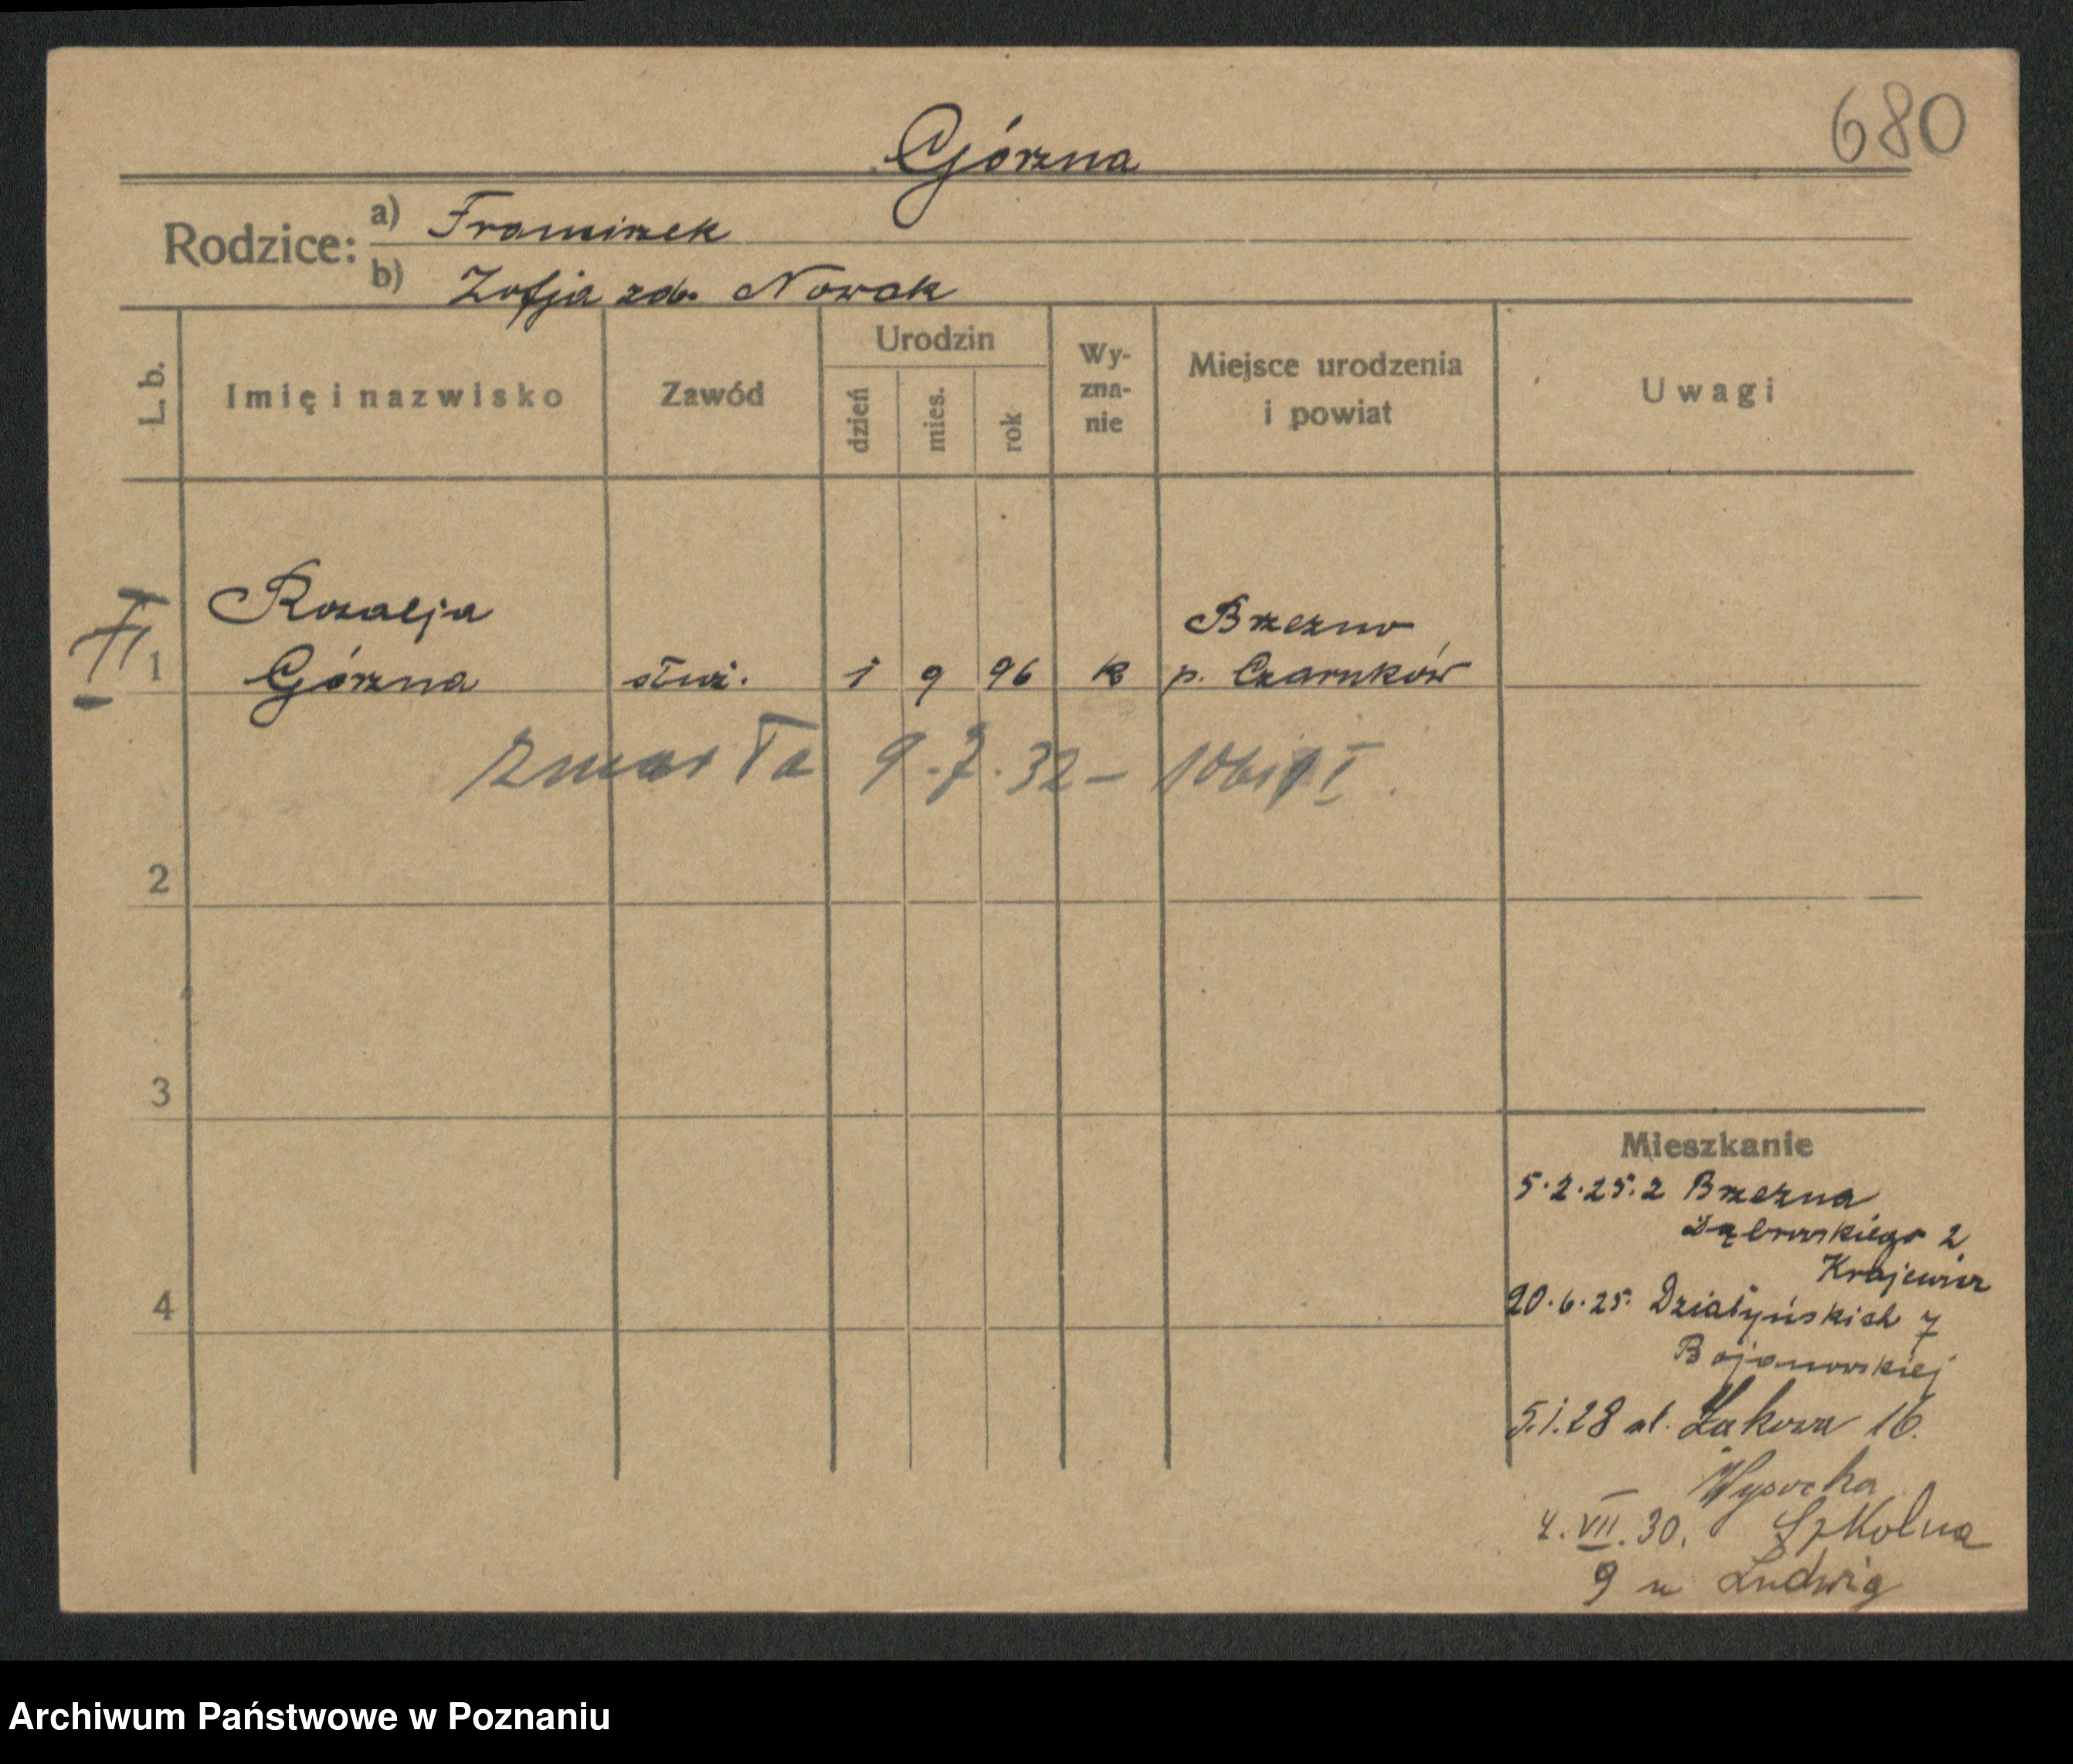 680
Górzna
Rodzice:
a) Franciszek
b) Zofja zdo. Nowak
L. b.
Imię i nazwisko
Zawód
Urodzin
dzień
mies.
rok
Wy-
zna-
nie
Miejsce urodzenia
i powiat
Uwagi
1
Rozalja
Górzna
służ.
1 9 96
k
Brzezno
p. Czarnków
zmarła 9.7.32 –
2
3
4
Mieszkanie
5.2.25. z Brzezna
Dąbrowskiego 2
20.6.25. Działyńskich 7
Bojanowskiej
5.1.28 ul. Łąkowa 16.
Wysocka
4.VII.30. Szkolna
9 u Ludwig
Archiwum Państwowe w Poznaniu